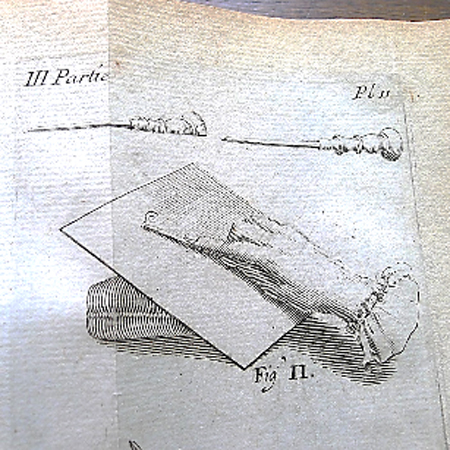 III Partie
Pl 11
Fig. II.